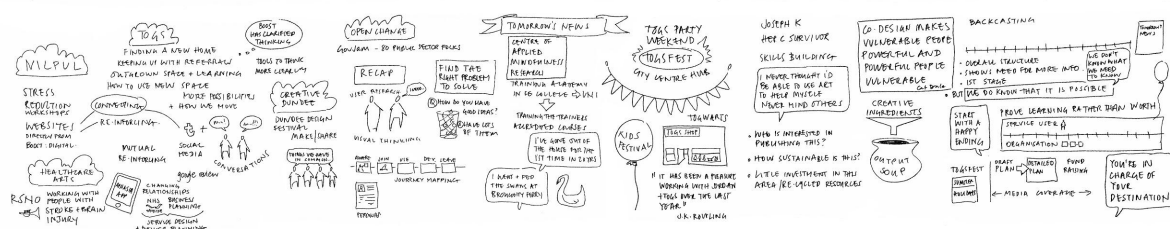 NILPUL
STRESS
REDUCTION
WORKSHOPS
WEBSITES
DIRECTION FROM
BOOST : DIGITAL
HEALTHCARE
ARTS
RSNO
WORKING WITH
PEOPLE WITH
STROKE + BRAIN
INJURY
TOGS?
FINDING A NEW HOME
KEEPING UP WITH REFERRALS
OUTGROWN SPACE + LEARNING
HOW TO USE NEW SPACE
CONNECTING
RE-INFORCING
MORE POSSIBILITIES
+ HOW WE MOVE
MUTUAL
RE-INFORCING
SOCIAL
MEDIA
CONVERSATIONS
CHANGING
RELATIONSHIPS
NHS BUSINESS
PLANNING
SERVICE DESIGN
BOOST
HAS CLARIFIED
THINKING
TOOLS TO THINK
MORE CLEARLY
CREATIVE
DUNDEE
DUNDEE DESIGN
FESTIVAL
MAKE/SHARE
THINGS WE HAVE
IN COMMON
OPEN CHANGE
GOVJAM - 80 PUBLIC SECTOR FOLKS
RECAP
USER RESEARCH
VISUAL THINKING
FIND THE
RIGHT PROBLEM
TO SOLVE
HOW DO YOU HAVE
GOOD IDEAS?
HAVE LOTS
OF THEM
AWARE JOIN USE DEV LEAVE
JOURNEY MAPPING
PERSONAS
TOMORROW'S NEWS
CENTRE OF
APPLIED
MINDFULNESS
RESEARCH
TRAINING ACADEMY
IN COLLEGE UNI
TRAINING THE TRAINERS
ACCREDITED COURSES
I'VE GONE OUT OF
THE HOUSE FOR THE
1ST TIME IN 20 YRS
I WENT + FED
THE SWANS AT
BROUGHTY FERRY
TOGS PARTY
WEEKEND
TOGSFEST
CITY CENTRE HUB
KIDS
FESTIVAL
TOGWARTS
TOGS SHOP
"IT HAS BEEN A PLEASURE
WORKING WITH JORDAN
+ TOGS OVER THE LAST
YEAR"
J.K. ROWLING
JOSEPH K
HEP C SURVIVOR
SKILLS BUILDING
I NEVER THOUGHT I'D
BE ABLE TO USE ART
TO HELP MYSELF
NEVER MIND OTHERS
• WHO IS INTERESTED IN
PUBLISHING THIS?
• HOW SUSTAINABLE IS THIS?
• LITTLE INVESTMENT IN THIS
AREA / RE-CYCLED RESOURCES
CO-DESIGN MAKES
VULNERABLE PEOPLE
POWERFUL AND
POWERFUL PEOPLE
VULNERABLE
CREATIVE
INGREDIENTS
OUTPUT
SOUP
BACKCASTING
TOMORROW'S
NEWS
• OVERALL STRUCTURE
• SHOWS NEED FOR MORE INFO
• 1ST STAGE
WE DON'T
KNOW WHAT
WE NEED
TO KNOW
• BUT WE DO KNOW THAT IT IS POSSIBLE
START
WITH A
HAPPY
ENDING
PROVE LEARNING RATHER THAN WORTH
SERVICE USER
ORGANISATION
TOGSFEST
SUMMER
HOLIDAYS
DRAFT
PLAN
DETAILED
PLAN
FUND
RAISING
MEDIA COVERAGE
YOU'RE IN
CHARGE OF
YOUR
DESTINATION